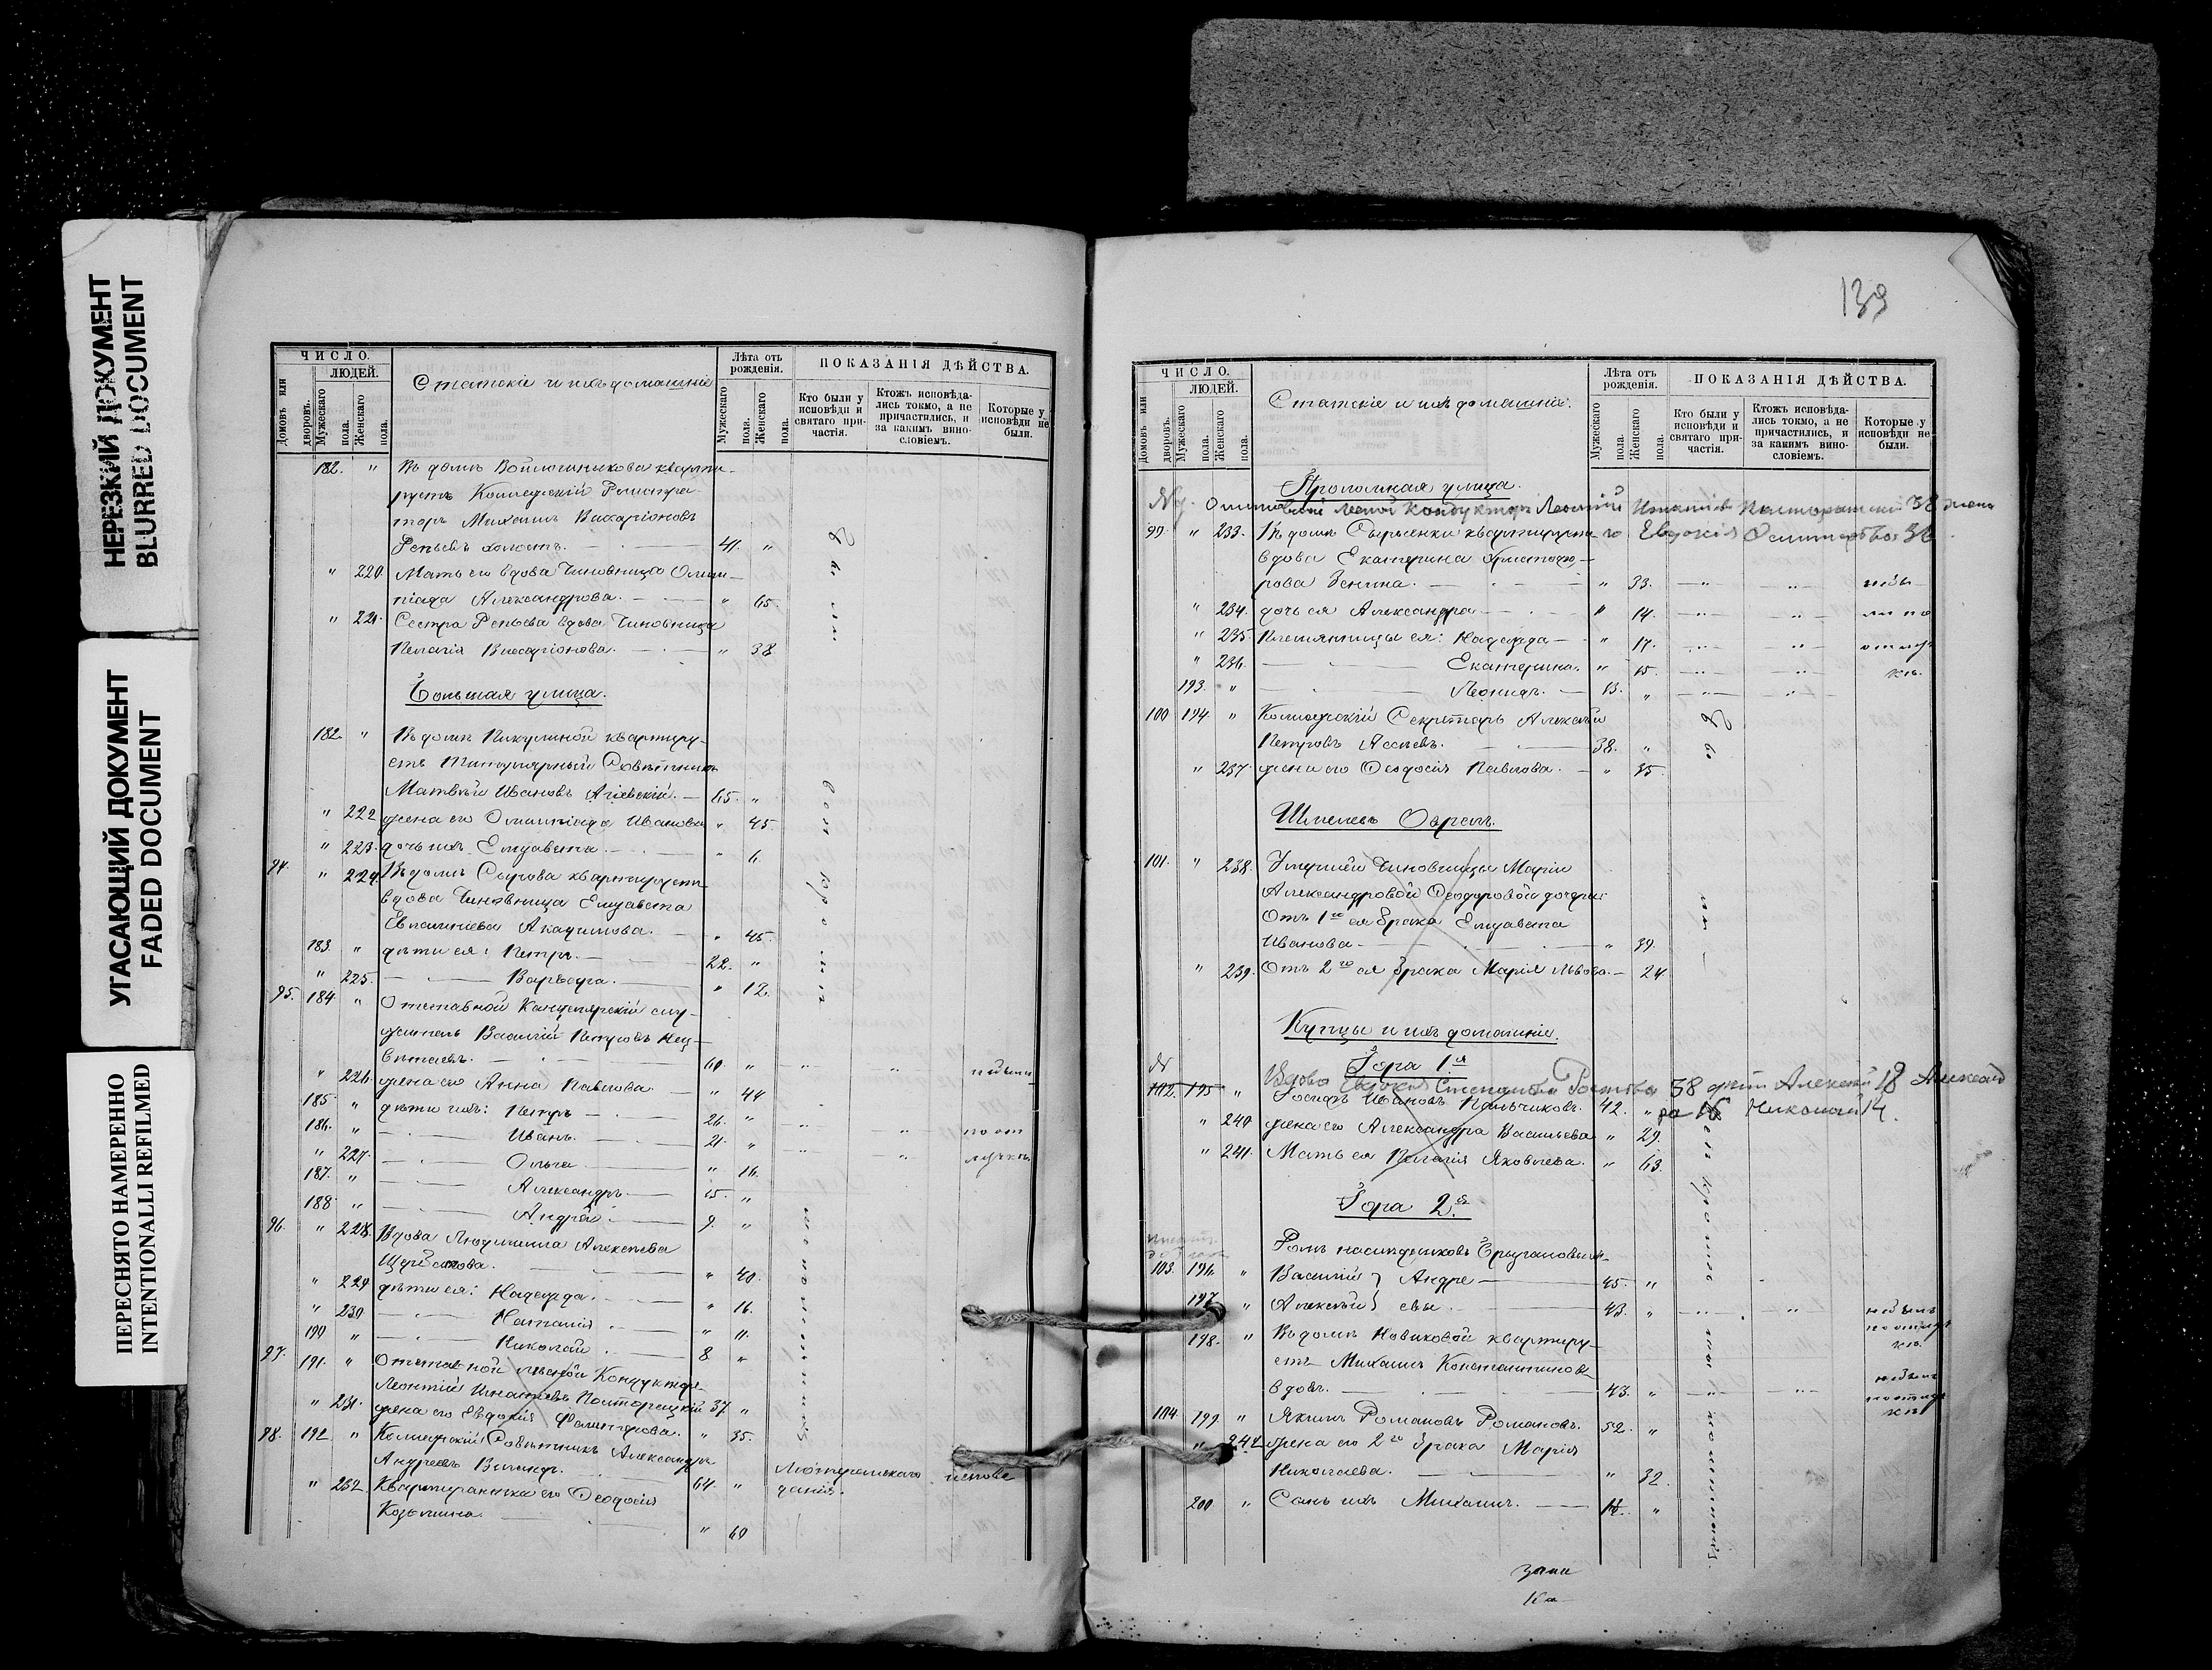 НЕРЕЗКИЙ ДОКУМЕНТ
BLURRED DOCUMENT
УГАСАЮЩИЙ ДОКУМЕНТ
FADED DOCUMENT
ПЕРЕСНЯТО НАМЕРЕННО
INTENTIONALLI REFILMED
ЧИСЛО.
Домовъ или дворовъ.
ЛЮДЕЙ.
Мужескаго пола.
Женскаго пола.
Статскіе и ихъ домашніе
Лѣта отъ рожденія.
Мужескаго пола.
Женскаго пола.
ПОКАЗАНІЯ ДѢЙСТВА.
Кто были у исповѣди и святаго причастія.
Ктожъ исповѣдались токмо, а не причастились, и за какимъ винословіемъ.
Которые у исповѣди не были.
182. " Въ домѣ квартируетъ Коллежскій Регистраторъ Михаилъ Виссаріоновъ
Репьевъ холостъ. 41. "
" 220 Мать его вдова Чиновница Олимпіада Александрова. " 65.
" 221. Сестра Репьева вдова Чиновница
Пелагія Виссаріонова. " 38
Большая улица.
182. " Въ домѣ Пикулиной квартируетъ Титулярный Совѣтникъ
Матвѣй Ивановъ 65. "
" 222 жена его Олимпіада Иванова " 45.
" 223. дочь ихъ Елизавета " 6.
94. " 224. Въ домѣ квартируетъ
вдова Чиновница Елизавета
Евлампіева Акадимова. " 45.
183. " дѣти ея: Петръ. 22. "
" 225. Варвара. " 12.
95. 184 " Отставной Канцелярскій служитель Василій Петровъ
60. " " " не были
" 226. жена его Анна Павлова " 44
185. " дѣти ихъ: Петръ 26. "
186. " Иванъ. 21. " по от
" 227. Ольга " 16. лучкѣ.
187. " Александръ 15. "
188. " Андрей 9. "
96. " 228. Вдова Людмила Алексѣева
" 40.
" 229 дѣти ея: Надежда. " 16.
" 230 Наталія " 11.
190 " Николай 8 "
97. 191. " Отставной лѣсной Кондукторъ
Леонтій Игнатьевъ Полторацкій 37 "
" 231. жена его Евдокія Филиппова. " 35.
98. 192 " Коллежскій Совѣтникъ Александръ
Андреевъ 64. " Лютеранскаго исповѣданія.
" 232. Квартирантка его Ѳеодосія
Козьмина. " 60
139
ЧИСЛО.
Домовъ или дворовъ.
ЛЮДЕЙ.
Мужескаго пола.
Женскаго пола.
Статскіе и ихъ домашніе.
Лѣта отъ рожденія.
Мужескаго пола.
Женскаго пола.
ПОКАЗАНІЯ ДѢЙСТВА.
Кто были у исповѣди и святаго причастія.
Ктожъ исповѣдались токмо, а не причастились, и за какимъ винословіемъ.
Которые у исповѣди не были.
Проломная улица.
Отставной лѣсной кондукторъ Леонтій Игнатьев Полторацкій 38 жена
его Евдокія Филиппова 36
99. " 233. Въ домѣ квартируетъ
вдова Екатерина Христофорова Зенина. " 33. " " не бы
" 234. дочь ея Александра " 14. " " ли по
" 235. Племянницы ея: Надежда " 17. " " отлуч
" 236. Екатерина. " 15. " " кѣ.
193. " Леонидъ. 13. " " "
100 194. " Коллежскій Секретарь Алексѣй
Петровъ 38. "
" 237. жена его Ѳеодосія Павлова. " 35.
Шмелевъ Оврагъ.
101. " 238. Умершей Чиновницы Маріи
Александровой Ѳеодоровой дочери:
Отъ 1го ея брака Елизавета
Иванова " 39.
" 239. Отъ 2го ея брака Марія Львова. 24
Купцы и ихъ домашніе.
Гора 1я
Вдова Евдокія Степанова 58 дѣти Алексѣй 18 Александра 16 Николай 14.
102. 195 " Іосифъ Ивановъ Пальчиковъ. 42. "
" 240 жена его Александра Васильева " 29.
" 241. Мать ея Пелагія Яковлева. " 63.
Гора 2я
Домъ наслѣдниковъ
103. 196. " Василій } Андре 45. "
197 " Алексѣй } евы. 43. " " " не былъ по отлучкѣ.
198. " Въ домѣ Новиковой квартируетъ Михаилъ Константиновъ
вдовъ. 43. " " " не былъ по отлучкѣ
104 199 " Якимъ Романовъ Романовъ. 52. "
" 242 жена его 2го брака Марія
Николаева. " 32.
200 " Сынъ ихъ Михаилъ. "